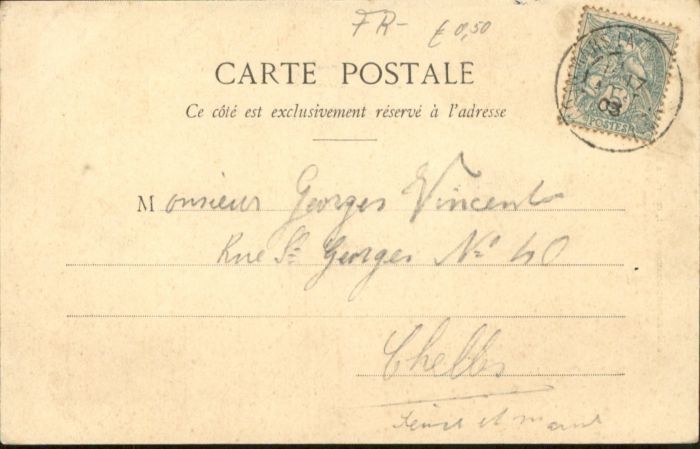 FR- € 0,50
CARTE POSTALE
Ce côté est exclusivement réservé à l'adresse
Monsieur Georges Vincent
Rue St Georges No 40
Chelles
Seine et Marne
03
POSTES